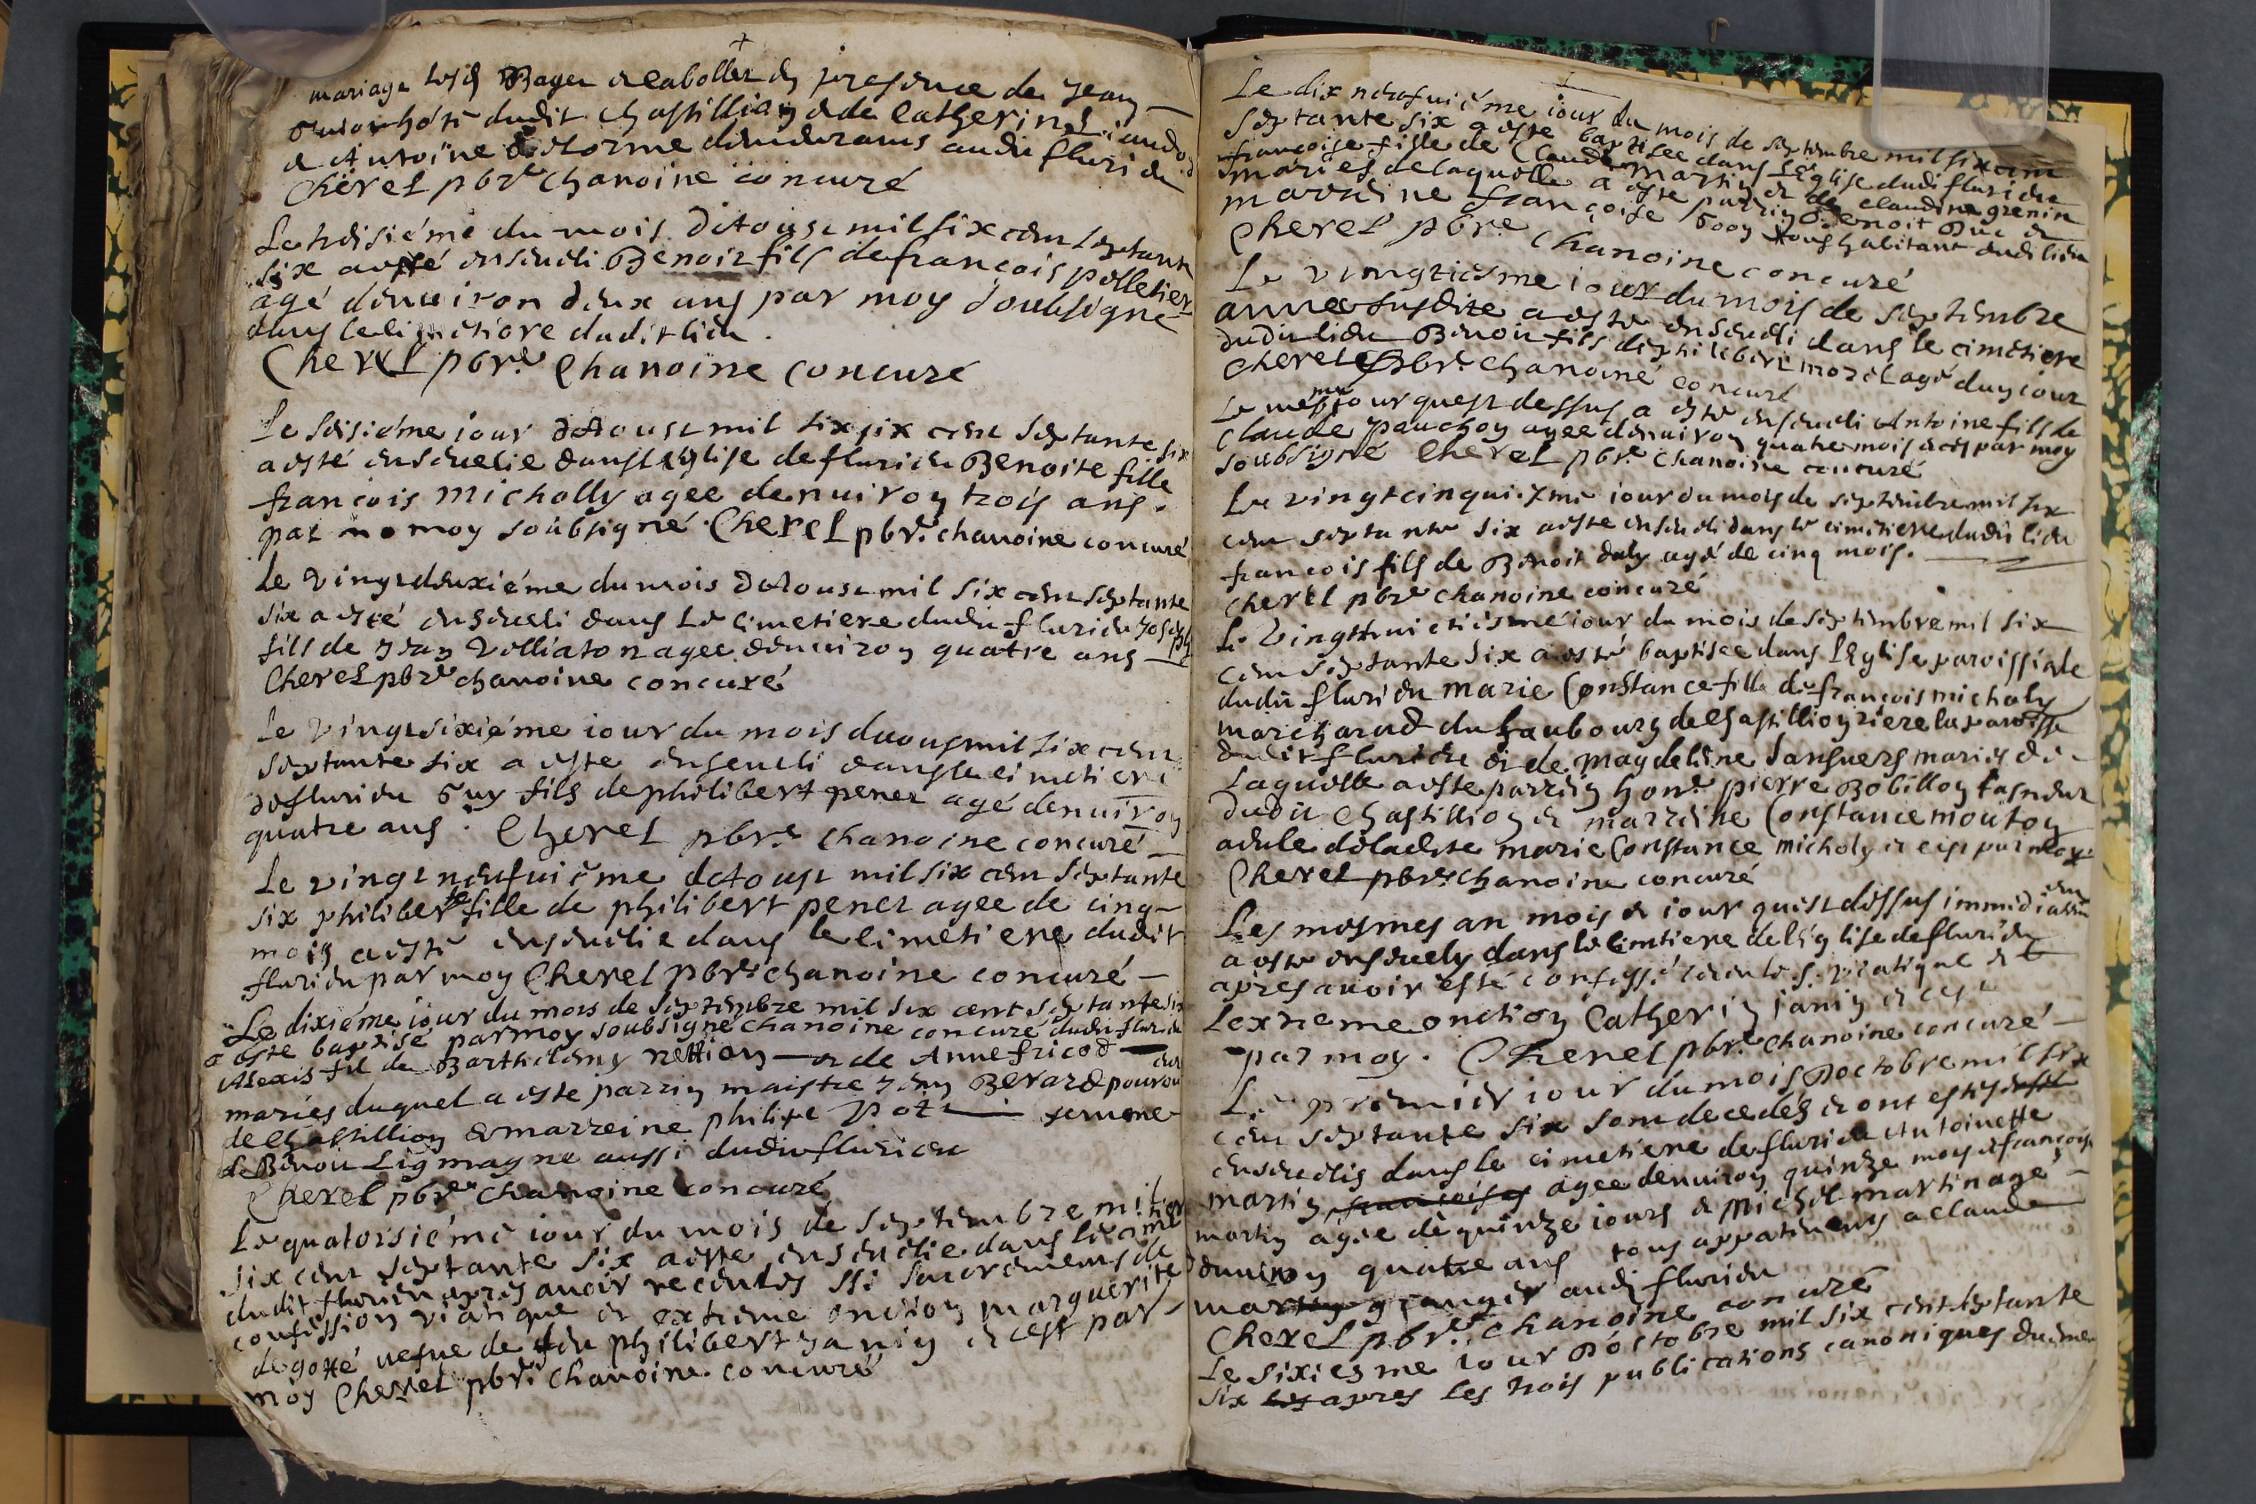 mariage lesd Bayer & labollet en presence de Jean
hoste dudit Chastillion & de Catherine
& Antoine demeurans audit flurieu
Cherel pbre chanoine concuré
Le troisiéme du mois daoust mil six cent septante
six a esté enseueli Benoit fils de françois pelletier
agé denuiron deux ans par moy soubsigné
dans le cimetiere dudit lieu.
Cherel pbre Chanoine Concuré
Le seisiéme iour daoust mil six six cent septante six
a esté enseuelie dans leglise de flurieu Benoite fille
françois Micholly agee denuiron trois ans.
par no moy soubsigné. Cherel pbre chanoine concuré
Le vingt deuxiéme du mois daoust mil six cent septante
six a esté enseueli dans le cimetiere dudit flurieu Joseph
fils de Jean Volliaton agee denuiron quatre ans
Cherel pbre chanoine concuré
Le vingt sixiéme iour du mois daoust mil six cent
septante six a este enseueli dans le cimetiere
de flurieu Guy fils de philibert penet agé denuiron
quatre ans. Cherel pbre chanoine concuré
Le vingt neufuiéme daoust mil six cent septante
six philiberte fille de philibert penet agee de cinq
mois a esté enseuelie dans le cimetiere dudit
flurieu par moy Cherel pbre chanoine concuré
Le dixiéme iour du mois de septembre mil six cent septante six
a este baptisé par moy soubsigné chanoine concuré dudit flurieu
Alexis fil de Barthelemy rettion & de Anne fricod
mariés duquel a este parrin maistre Jean Berard
de Chastillion & marreine philipe
de Benoit Ligmagne aussi dudit flurieu
Cherel pbre chanoine concuré
Le quatorsiéme iour du mois de septembre mil
six cent septante six a este enseuelie dans le
dudit flurieu apres auoir receu les sts sacremens de
confession viatique & extreme onction marguerite
degotté vefue de feu philibert Janin & cest par
moy Cherel pbre chanoine concuré
Le dix neufuiéme iour du mois de septembre mil six cent
septante six a este baptisee dans lEglise dudit flurieu
françoise fille de Claude martin & de claudine grenin
mariés de laquelle a este parrin Benoit Buc &
marraine françoise tous habitant dudit lieu
Cherel pbre Chanoine concuré
Le vingtiesme iour du mois de septembre
annee susdite a este enseueli dans le cimetiere
dudit lieu Benoit fils de philibert morel agé dun iour
Cherel pbre chanoine concuré
Le mesme iour quest dessus a este enseueli Antoine fils de
Claude pauchon agee denuiron quatre mois & cest par moy
soubsigné Cherel pbre chanoine concuré
Le vingtcinquiesme iour du mois de septembre mil six
cent septante six a este enseueli dans le cimetiere dudit lieu
francois fils de Benoit daly agé de cinq mois.
Cherel pbre chanoine concuré
Le Vingthuictiesme iour du mois de septembre mil six
cent septante six a esté baptisee dans lEglise paroissiale
dudit flurieu marie Constance fille de françois micholy
marchand du faubourg de Chastillion riere la paroisse
dudit flurieu & de Magdeleine mariés de
laquelle a este parrin hon. pierre Bobillon
dudit Chastillion & marreine Constance mouton
de ladite marie Constance micholy & cest par moy
Cherel pbre chanoine concuré
Les mesmes an mois & iour quest dessus immediatement
a este enseuely dans le cimtiere de lEglise de flurieu
apres auoir esté confessé receu le s. viatique &
lextreme onction Catherin janin & cest
par moy. Cherel pbre chanoine concuré
Le premier iour du mois doctobre mil six
cent septante six sont decedés & ont estés
enseuelis dans le cimetiere de flurieu Antoinette
martin agee denuiron quinze mois françoise
martin agee de quinze iours & Michel martin agé
denuiron quatre ans tous appartenens a Claude
granger audit flurieu
Cherel pbre chanoine concuré
Le sixiesme iour doctobre mil six cent septante
six apres les trois publications canoniques